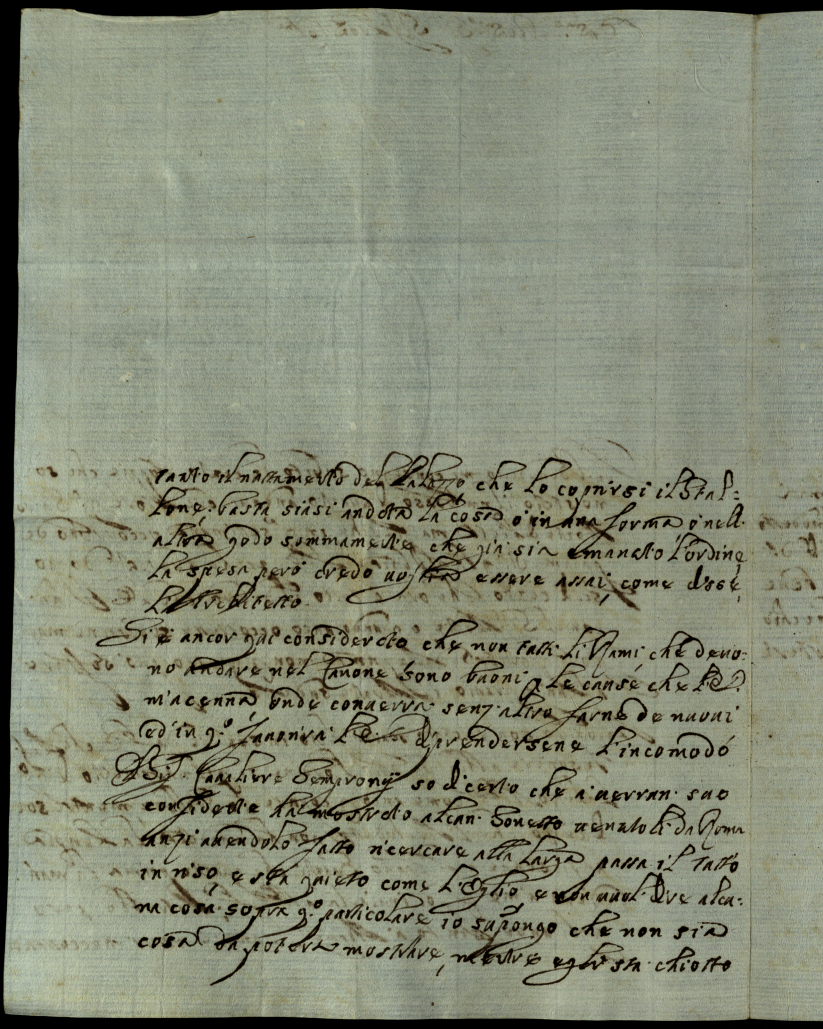 tanto il nattamento del Palazzo che lo coprirsi il Stal=
lone, basta siasi andata la cosa o in una forma o nell
altra godo sommamente che già sia emanato l'ordine
la spesa però credo essere assai, come disse
l'Architetto
Si è ancor qui considerato che non tutti li Rami che devo=
no andare nel sono buoni p le cause che
m'acenna onde converrà senz'altro farne de nuovi
ed in q.o di prendersene l'incomodo
Il Sig. Cavaliere Sempronij so di certo che a verran suo
confidente ha mostrato alcun Sonetto venutoli da Roma
anzi avendolo fatto ricercare alla larga passa il tutto
in riso e sta quieto come l'Oglio e non vuol dire alcu=
na cosa sopra q.o particolare io supongo che non sia
cosa da potersi mostrare, mentre egli sta chiotto